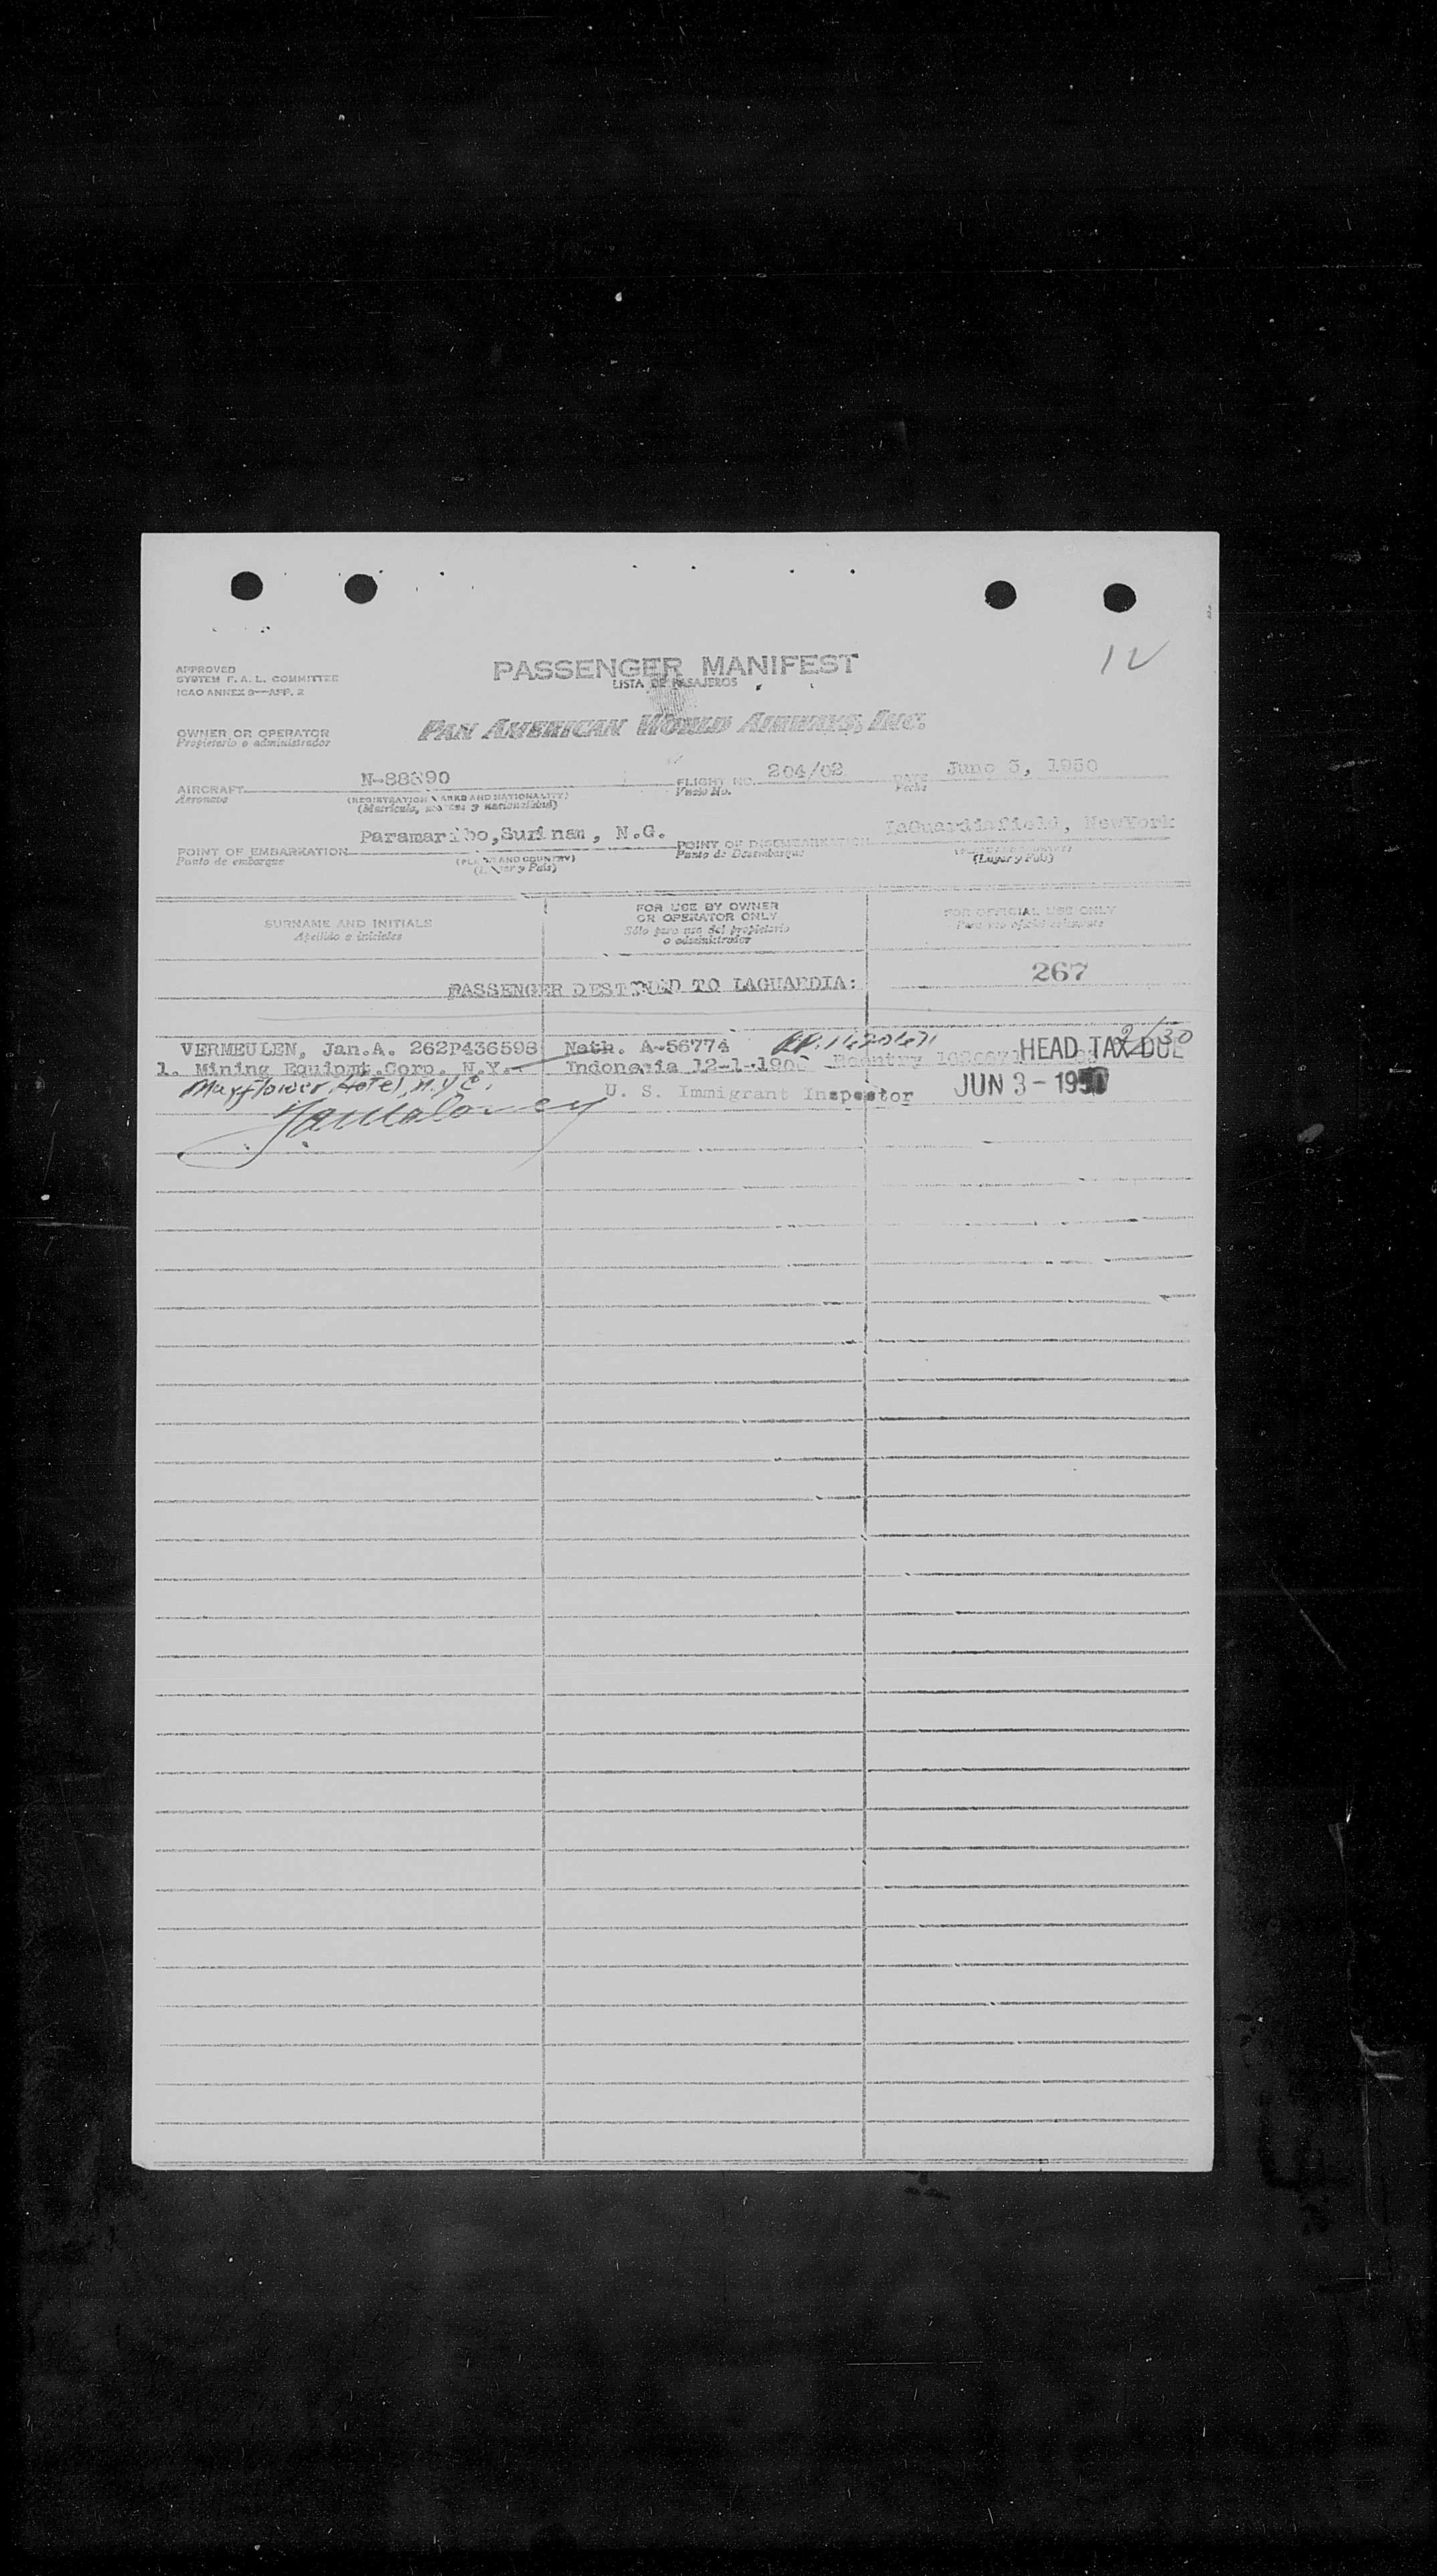 12
APPROVED
SYSTEM F. A. L. COMMITTEE
ICAO ANNEX 9—APP. 2
PASSENGER MANIFEST
LISTA DE PASAJEROS
OWNER OR OPERATOR
Propietario o administrador
PAN AMERICAN WORLD AIRWAYS, INC.
AIRCRAFT N-88890 FLIGHT NO. 204/02 DATE June 3, 1950
Aeronave (REGISTRATION MARKS AND NATIONALITY) Vuelo No. Fecha
(Matricula, marcas y nacionalidad)
POINT OF EMBARKATION Paramaribo,Surinam, N.G. POINT OF DISEMBARKATION LaGuardiafield, NewYork
Punto de embarque (PLACE AND COUNTRY) Punto de Desembarque (PLACE AND COUNTRY)
(Lugar y País) (Lugar y País)
SURNAME AND INITIALS
Apellido e iniciales
FOR USE BY OWNER
OR OPERATOR ONLY
Sólo para uso del propietario
o administrador
FOR OFFICIAL USE ONLY
Para uso oficial solamente
267
PASSENGER DESTINED TO LAGUARDIA:
VERMEULEN, Jan.A. 262P436598 Neth. A-56774 HEAD TAX DUE
1. Mining Equipmt.Corp. N.Y. Indonesia 12-1- Reentry
Mayflower Hotel, N.Y.C. U. S. Immigrant Inspector JUN 3 - 1950